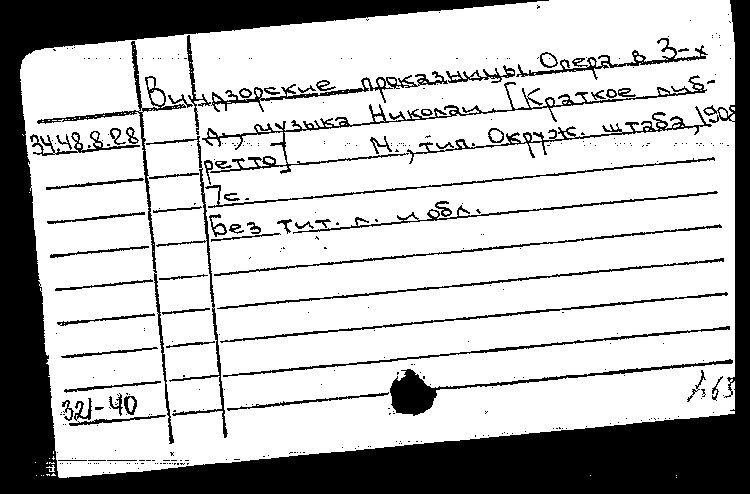 Виндзорские проказницы. Опера в 3-х
34.48.8.28 д., музыка Николаи. [Краткое либ-
ретто]. М., тип. Окруж. штаба, 1908
7с.
Без тит. л. и обл.
321-40